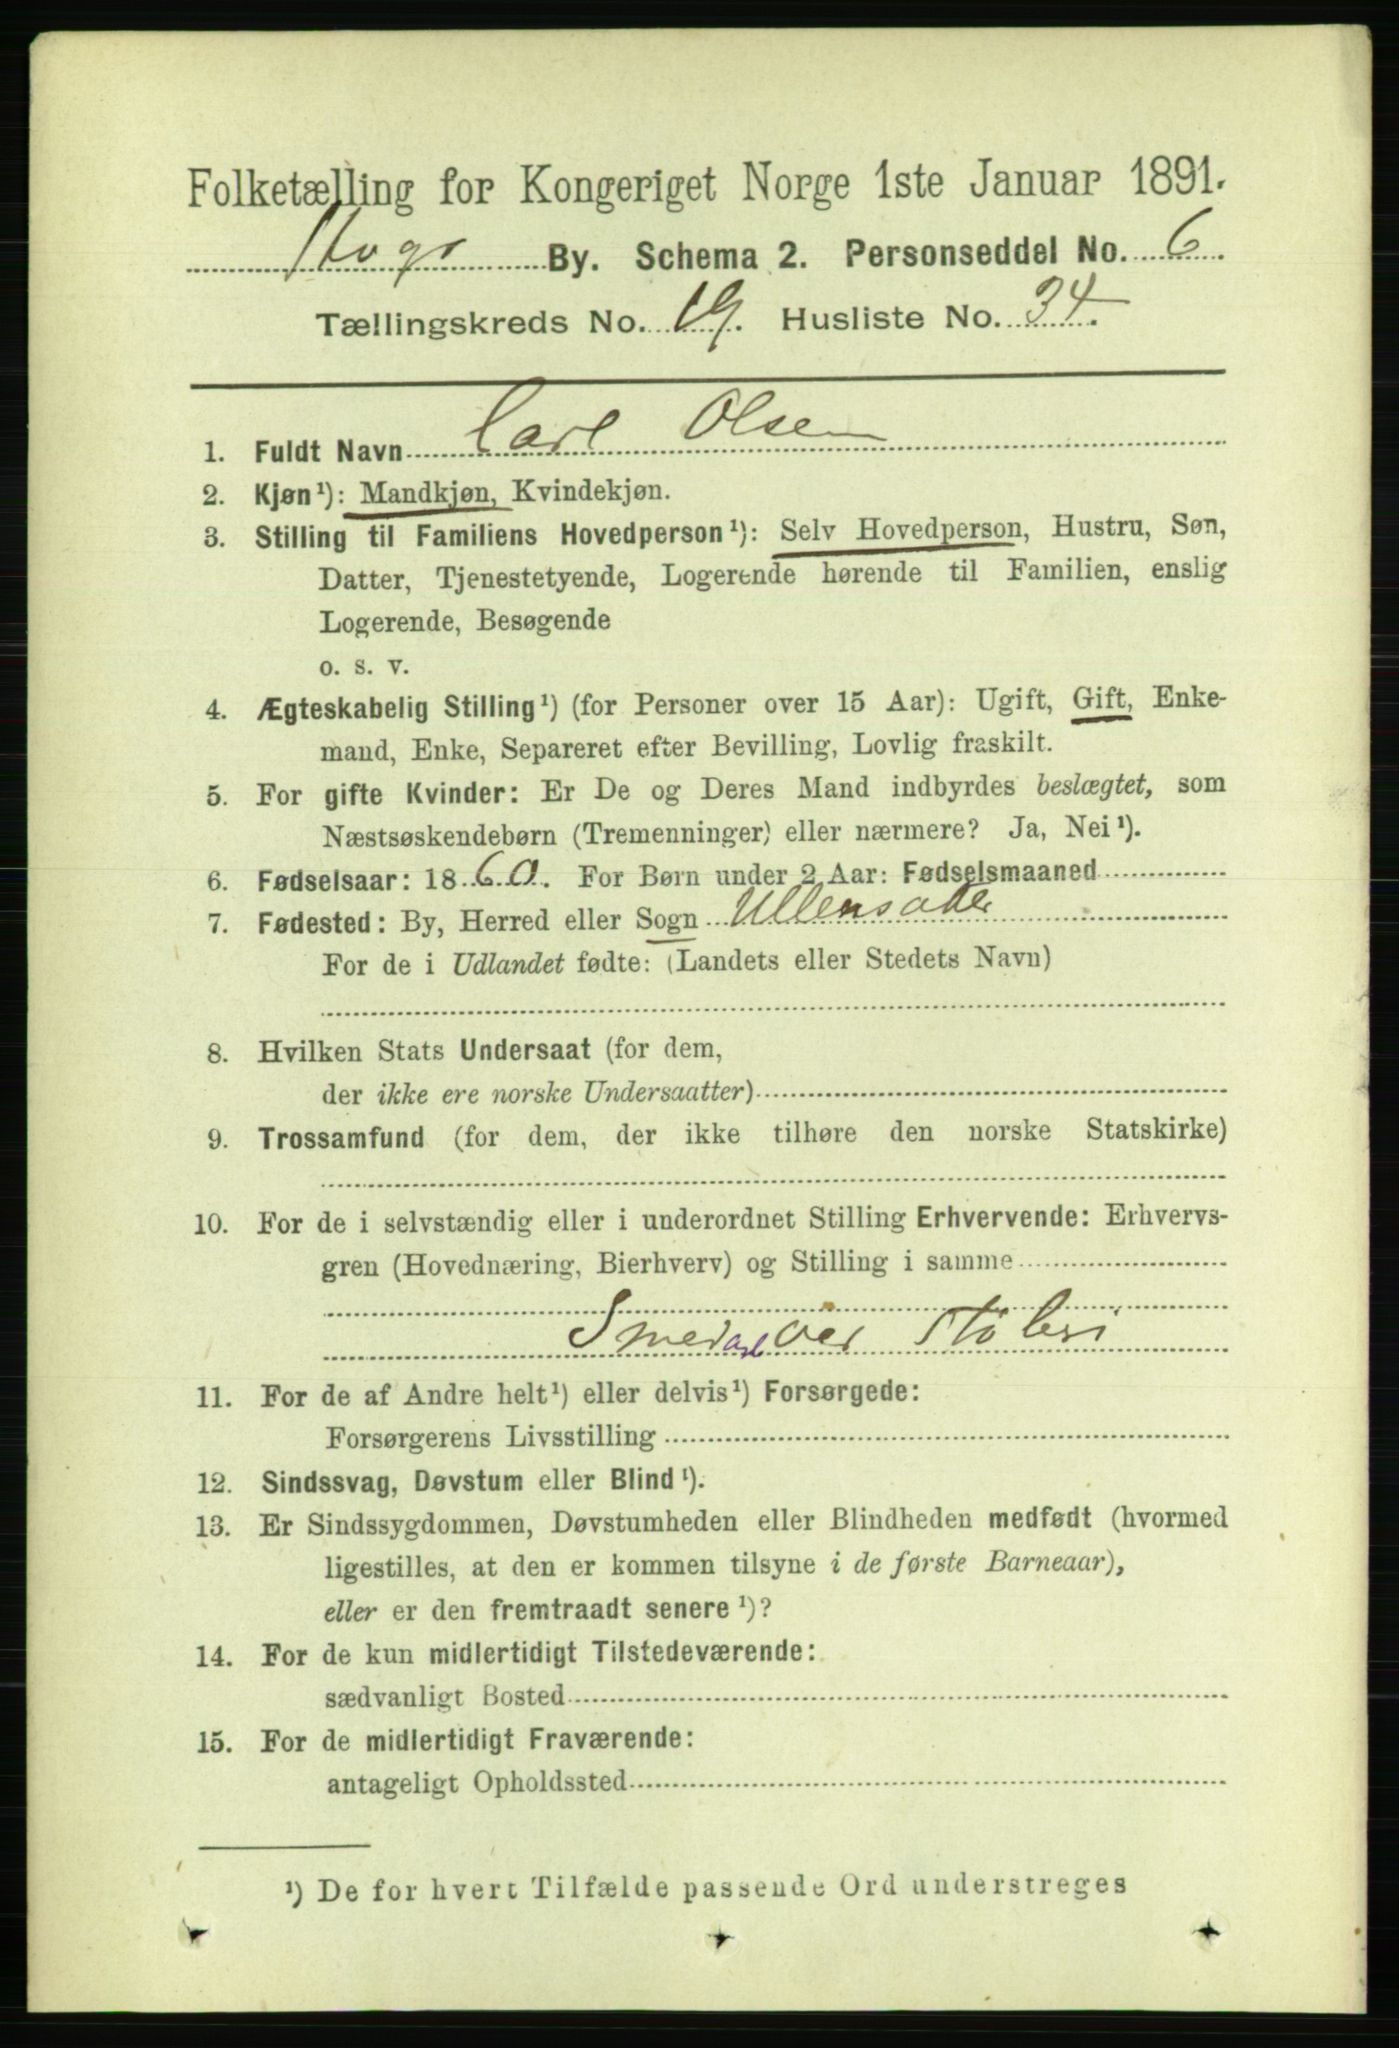 Folketælling for Kongeriget Norge 1ste Januar 1891.
By. Schema 2. Personseddel No. 6
Tællingskreds No. 19. Husliste No. 34.
1. Fuldt Navn Carl Olsen
2. Kjøn¹): Mandkjøn, Kvindekjøn.
3. Stilling til Familiens Hovedperson¹): Selv Hovedperson, Hustru, Søn,
Datter, Tjenestetyende, Logerende hørende til Familien, enslig
Logerende, Besøgende
o. s. v.
4. Ægteskabelig Stilling¹) (for Personer over 15 Aar): Ugift, Gift, Enke-
mand, Enke, Separeret efter Bevilling, Lovlig fraskilt.
5. For gifte Kvinder: Er De og Deres Mand indbyrdes beslægtet, som
Næstsøskendebørn (Tremenninger) eller nærmere? Ja, Nei¹).
6. Fødselsaar: 1860. For Børn under 2 Aar: Fødselsmaaned
7. Fødested: By, Herred eller Sogn Ullensaker
For de i Udlandet fødte: (Landets eller Stedets Navn)
8. Hvilken Stats Undersaat (for dem,
der ikke ere norske Undersaatter)
9. Trossamfund (for dem, der ikke tilhøre den norske Statskirke)
10. For de i selvstændig eller i underordnet Stilling Erhvervende: Erhvervs-
gren (Hovednæring, Bierhverv) og Stilling i samme
Smedarb ved Støberi
11. For de af Andre helt¹) eller delvis¹) Forsørgede:
Forsørgerens Livsstilling
12. Sindssvag, Døvstum eller Blind¹).
13. Er Sindssygdommen, Døvstumheden eller Blindheden medfødt (hvormed
ligestilles, at den er kommen tilsyne i de første Barneaar),
eller er den fremtraadt senere¹)?
14. For de kun midlertidigt Tilstedeværende:
sædvanligt Bosted
15. For de midlertidigt Fraværende:
antageligt Opholdssted
¹) De for hvert Tilfælde passende Ord understreges